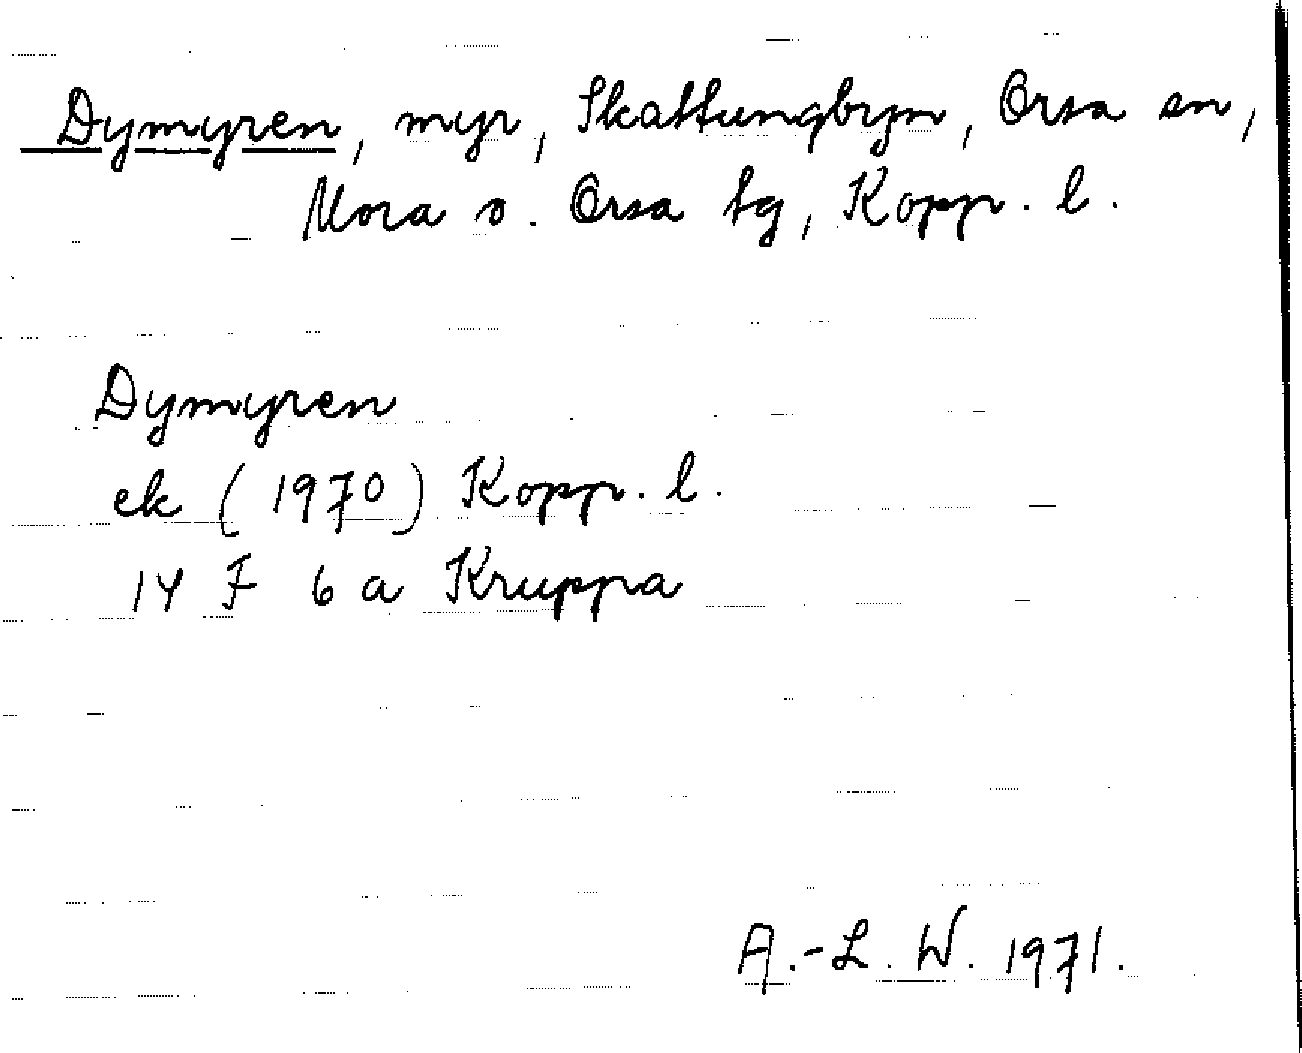 Dymyren, myr, Skattungbyn, Orsa sn,
Mora o. Orsa tg, Kopp. l.
Dymyren
ek (1970) Kopp. l.
14 F 6 a Kruppa
A.-L. W. 1971.